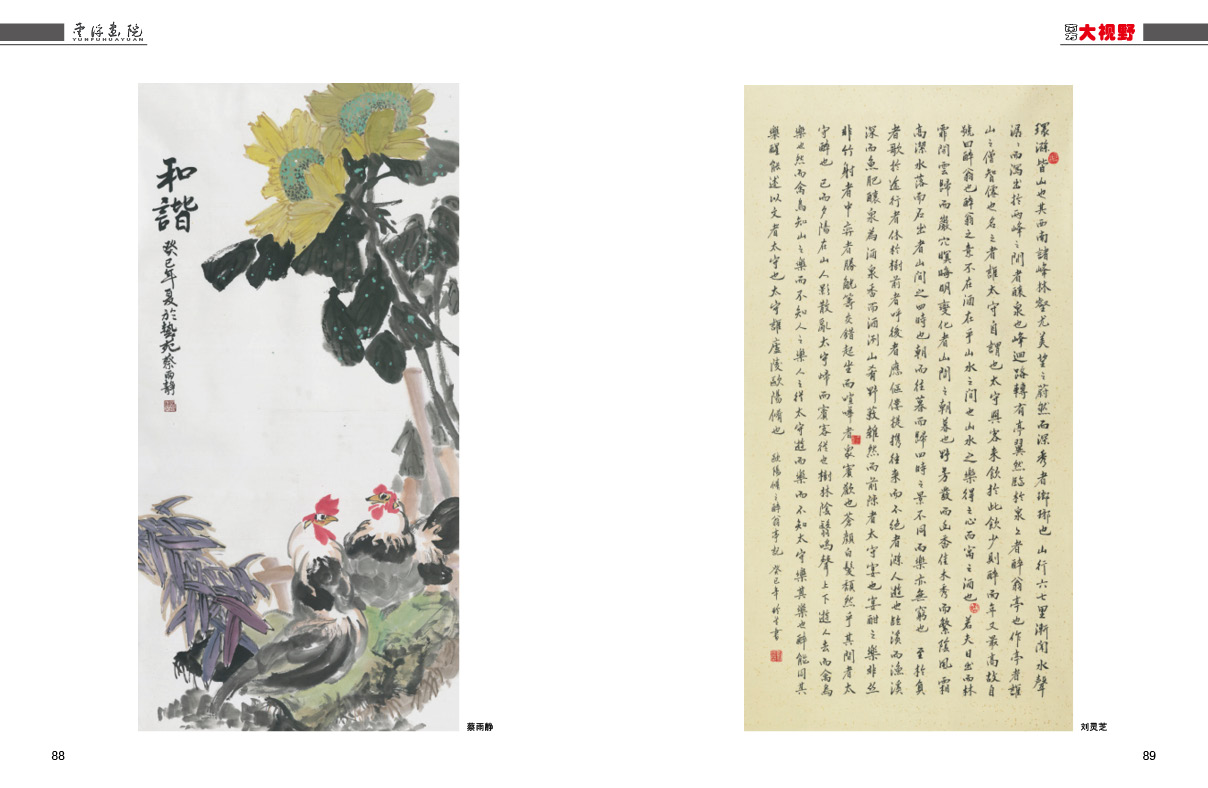 雲浮畫院
YUNFUHUAYUAN
大视野
和諧
癸巳年夏於藝苑蔡雨静
蔡雨静
88
環滁皆山也其西南諸峰林壑尤美望之蔚然而深秀者瑯琊也山行六七里漸聞水聲
潺〻而瀉出於兩峰之間者釀泉也峰迴路轉有亭翼然臨於泉上者醉翁亭也作亭者誰
山之僧智僊也名之者誰太守自謂也太守與客來飲於此飲少則醉而年又最高故自
號曰醉翁也醉翁之意不在酒在乎山水之間也山水之樂得之心而寓之酒也若夫日出而林
霏開雲歸而巖穴暝晦明變化者山間之朝暮也野芳發而幽香佳木秀而繁陰風霜
高潔水落而石出者山間之四時也朝而往暮而歸四時之景不同而樂亦無窮也至於負
者歌於途行者休於樹前者呼後者應傴僂提攜往來而不絕者滁人遊也臨溪而漁溪
深而魚肥釀泉為酒泉香而酒洌山肴野蔌雜然而前陳者太守宴也宴酣之樂非絲
非竹射者中弈者勝觥籌交錯起坐而喧嘩者眾賓歡也蒼顏白髮頹然乎其間者太
守醉也已而夕陽在山人影散亂太守歸而賓客從也樹林陰翳鳴聲上下遊人去而禽鳥
樂也然而禽鳥知山之樂而不知人之樂人之從太守遊而樂而不知太守樂其樂也醉能同其
樂醒能述以文者太守也太守誰廬陵歐陽脩也 歐陽脩之醉翁亭記 癸巳年 書
刘灵芝
89